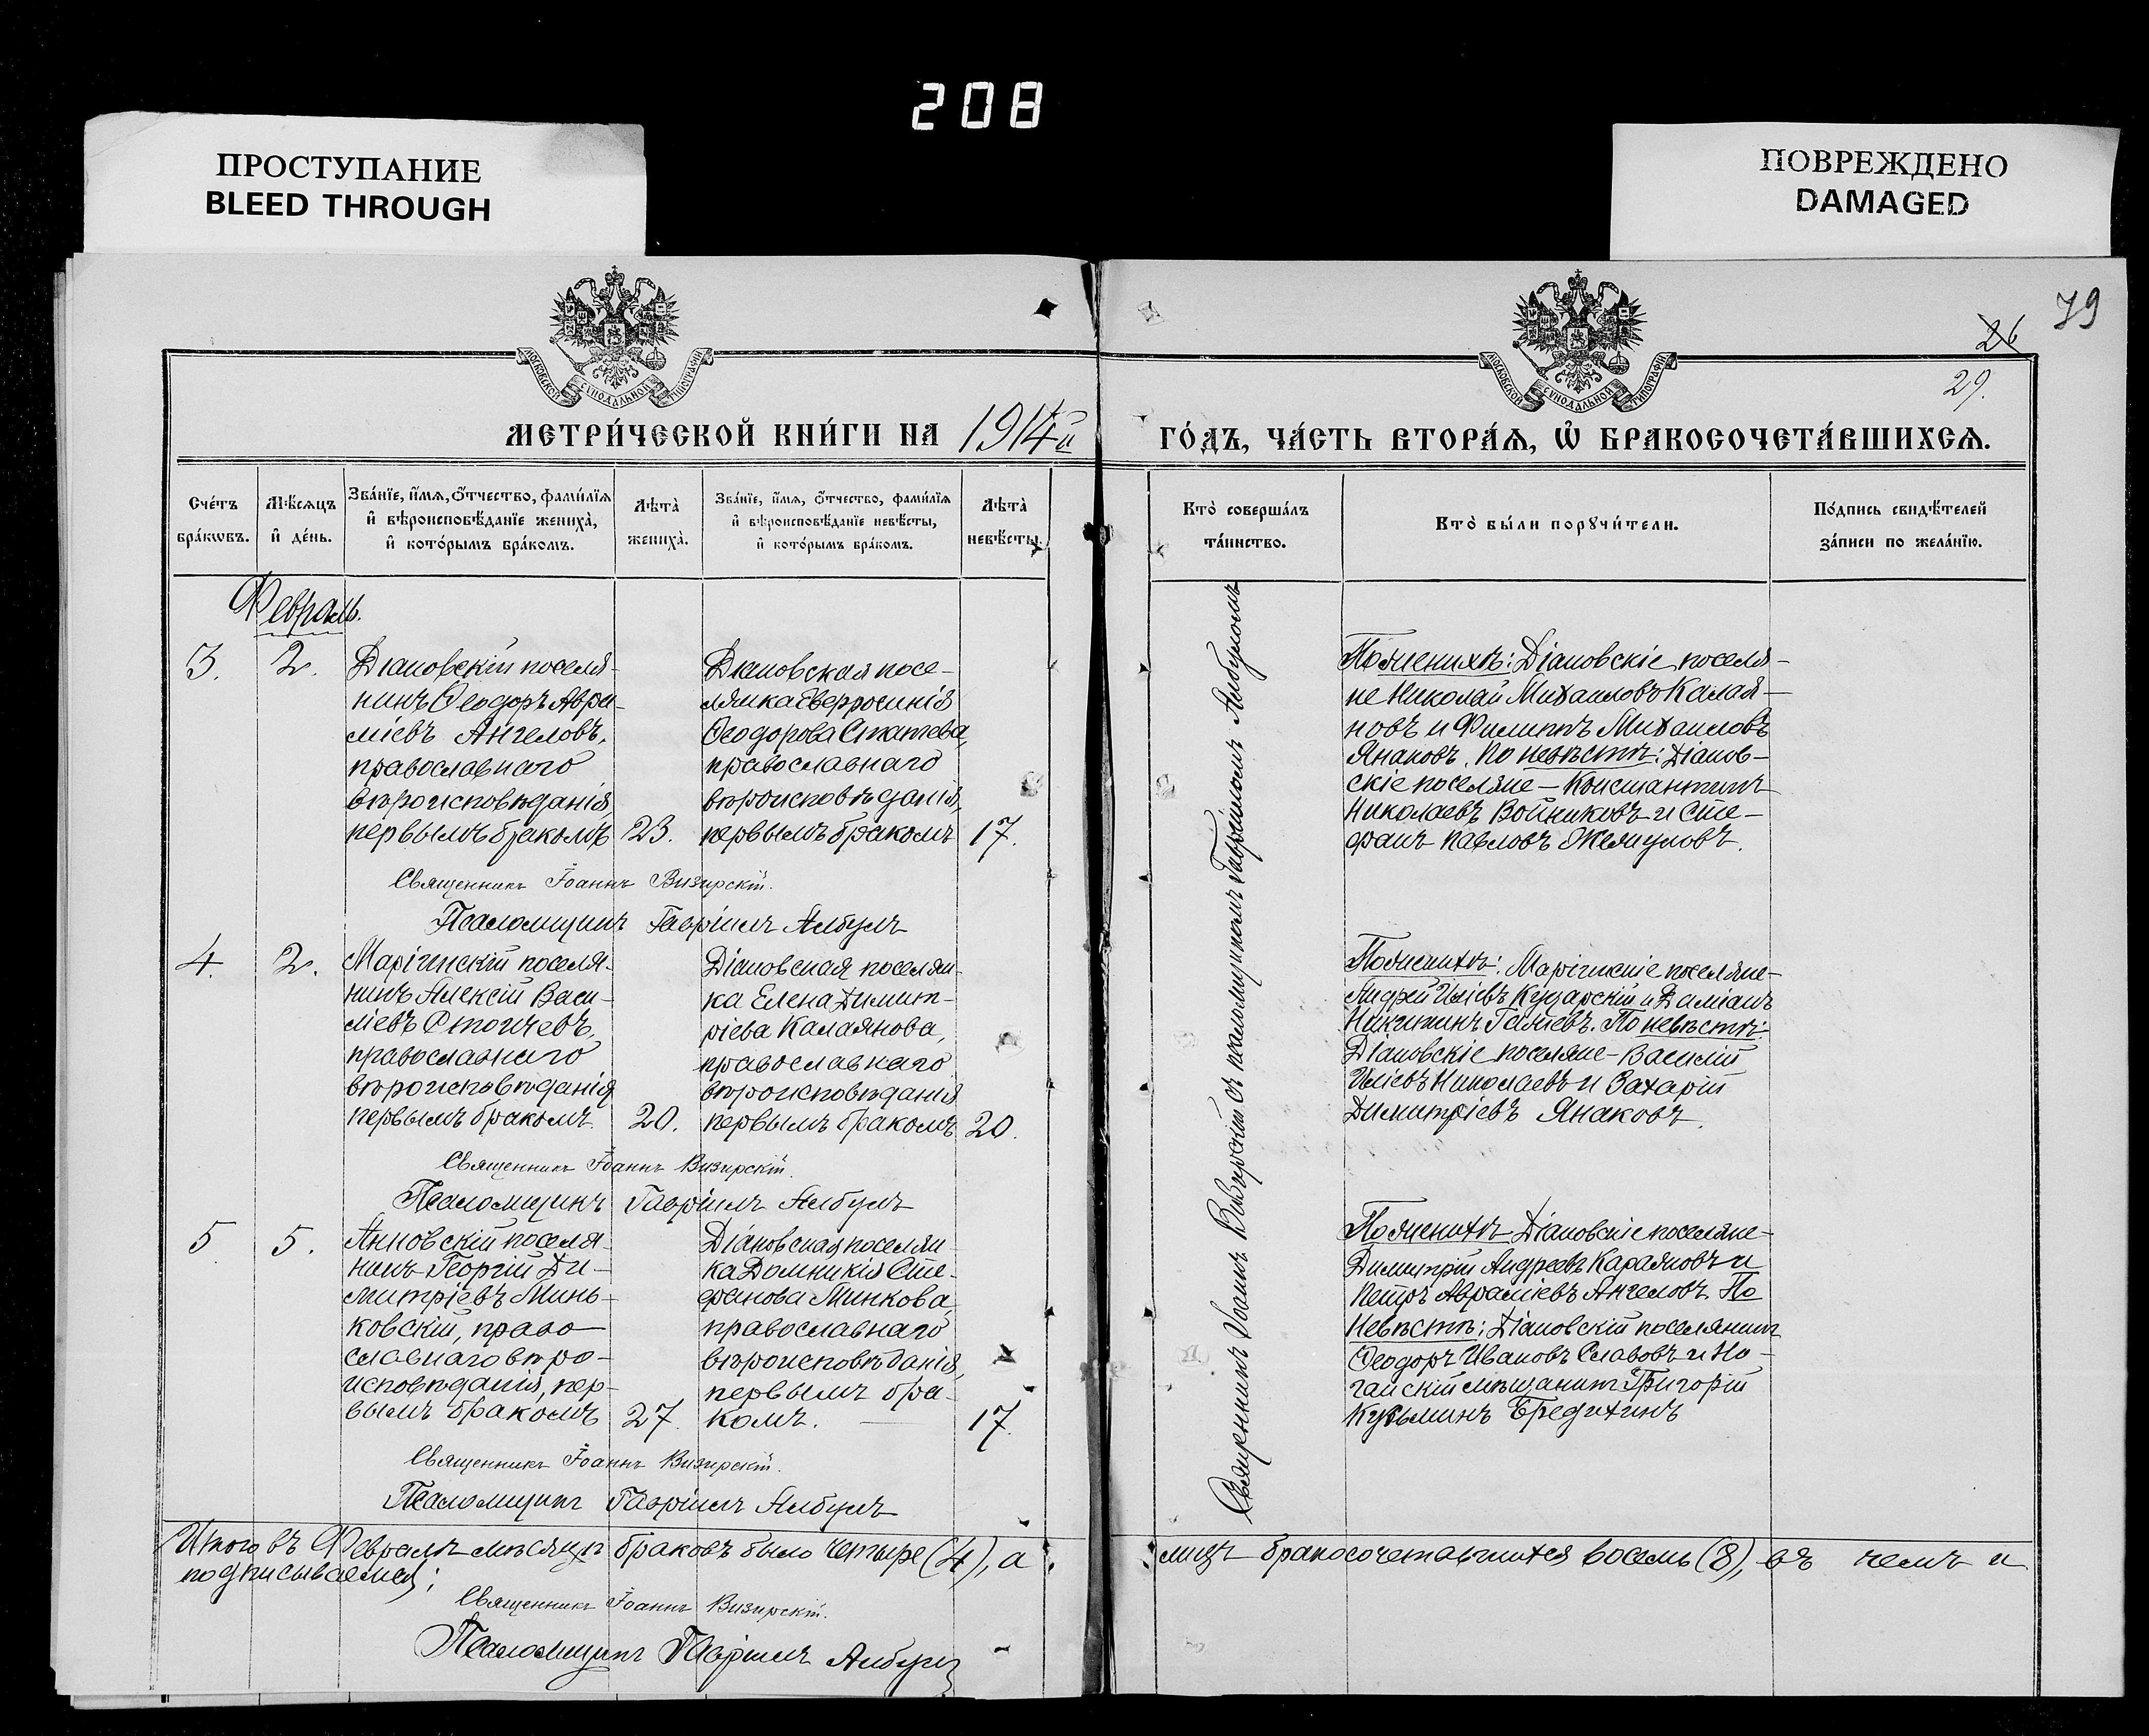 208
ПРОСТУПАНИЕ
BLEED THROUGH
ПОВРЕЖДЕНО
DAMAGED
79
26
29.
МОСКОВСКОЙ СѴНОДАЛЬНОЙ ТИПОГРАФІИ
МОСКОВСКОЙ СѴНОДАЛЬНОЙ ТИПОГРАФІИ
МЕТРИ́ЧЕСКОЙ КНИ́ГИ НА 1914й ГО́ДЪ, ЧА́СТЬ ВТОРА́Ѧ, Ѽ БРАКОСОЧЕТА́ВШИХСѦ.
Сче́тъ
бра́кѡвъ.
Мѣ́сѧцъ
и҆ де́нь.
Зва́нїе, и҆́мѧ, ѻ҆́тчество, фами́лїѧ
и҆ вѣроисповѣ́данїе жениха̀,
и҆ кото́рымъ бра́комъ.
Лѣ́та
жениха̀.
Зва́нїе, и҆́мѧ, ѻ҆́тчество, фами́лїѧ
и҆ вѣроисповѣ́данїе невѣ́сты,
и҆ кото́рымъ бра́комъ.
Лѣ́та
невѣ́сты.
Кто̀ соверша́лъ
та́инство.
Кто̀ бы́ли порꙋчи́тели.
По́дпись свидѣ́телей
за́писи по жела́нїю.
Февраль.
3.
2.
Діановскій поселя-
нинъ Ѳеодоръ Авра-
міевъ Ангеловъ,
православнаго
вѣроисповѣданія,
первымъ бракомъ
23.
Діановская посе-
лянка Евфросинія
Ѳеодорова Статева,
православнаго
вѣроисповѣданія,
первымъ бракомъ
17.
Священникъ Іоаннъ Визирскій съ псаломщикомъ Гавріиломъ Албуломъ
По женихѣ: Діановскіе поселя-
не Николай Михаиловъ Калая-
новъ и Филиппъ Михаиловъ
Янаковъ. По невѣстѣ: Діанов-
скіе поселяне - Константинъ
Николаевъ Войниковъ и Сте-
фанъ Павловъ Желяуловъ.
Священникъ Іоаннъ Визирскій.
Псаломщикъ Гавріилъ Албулъ
4.
2.
Маріинскій поселя-
нинъ Алексій Васи-
ліевъ Стоичевъ,
православнаго
вѣроисповѣданія
первымъ бракомъ.
20.
Діановская поселян-
ка Елена Димит-
ріева Калаянова,
православнаго
вѣроисповѣданія
первымъ бракомъ
20.
По женихѣ: Маріинскіе поселяне-
Андрей Иліевъ Куцарскій и Даміанъ
Никитинъ Галіевъ. По невѣстѣ:
Діановскіе поселяне - Василій
Иліевъ Николаевъ и Захарій
Димитріевъ Янаковъ.
Священникъ Іоаннъ Визирскій.
Псаломщикъ Гавріилъ Албулъ
5.
5.
Анновскій поселя-
нинъ Георгій Ди-
митріевъ Минь-
ковскій, право-
славнаго вѣро-
исповѣданія, пер-
вымъ бракомъ
27.
Діановская поселян-
ка Домникія Сте-
фанова Минкова,
православнаго
вѣроисповѣданія,
первымъ бра-
комъ.
17.
По женихѣ Діановскіе поселяне-
Димитрій Андреевъ Караяновъ и
Петръ Авраміевъ Ангеловъ. По
невѣстѣ: Діановскій поселянинъ
Ѳеодоръ Ивановъ Славовъ и Но-
гайскій мѣщанинъ Григорій
Кузьминъ Бредихинъ
Священникъ Іоаннъ Визирскій.
Псаломщикъ Гавріилъ Албулъ
Итого въ Февралѣ мѣсяцѣ браковъ было четыре (4), а лицъ бракосочетавшихся восемь (8), въ чемъ и
подписываемся:
Священникъ Іоаннъ Визирскій.
Псаломщикъ Гавріилъ Албулъ